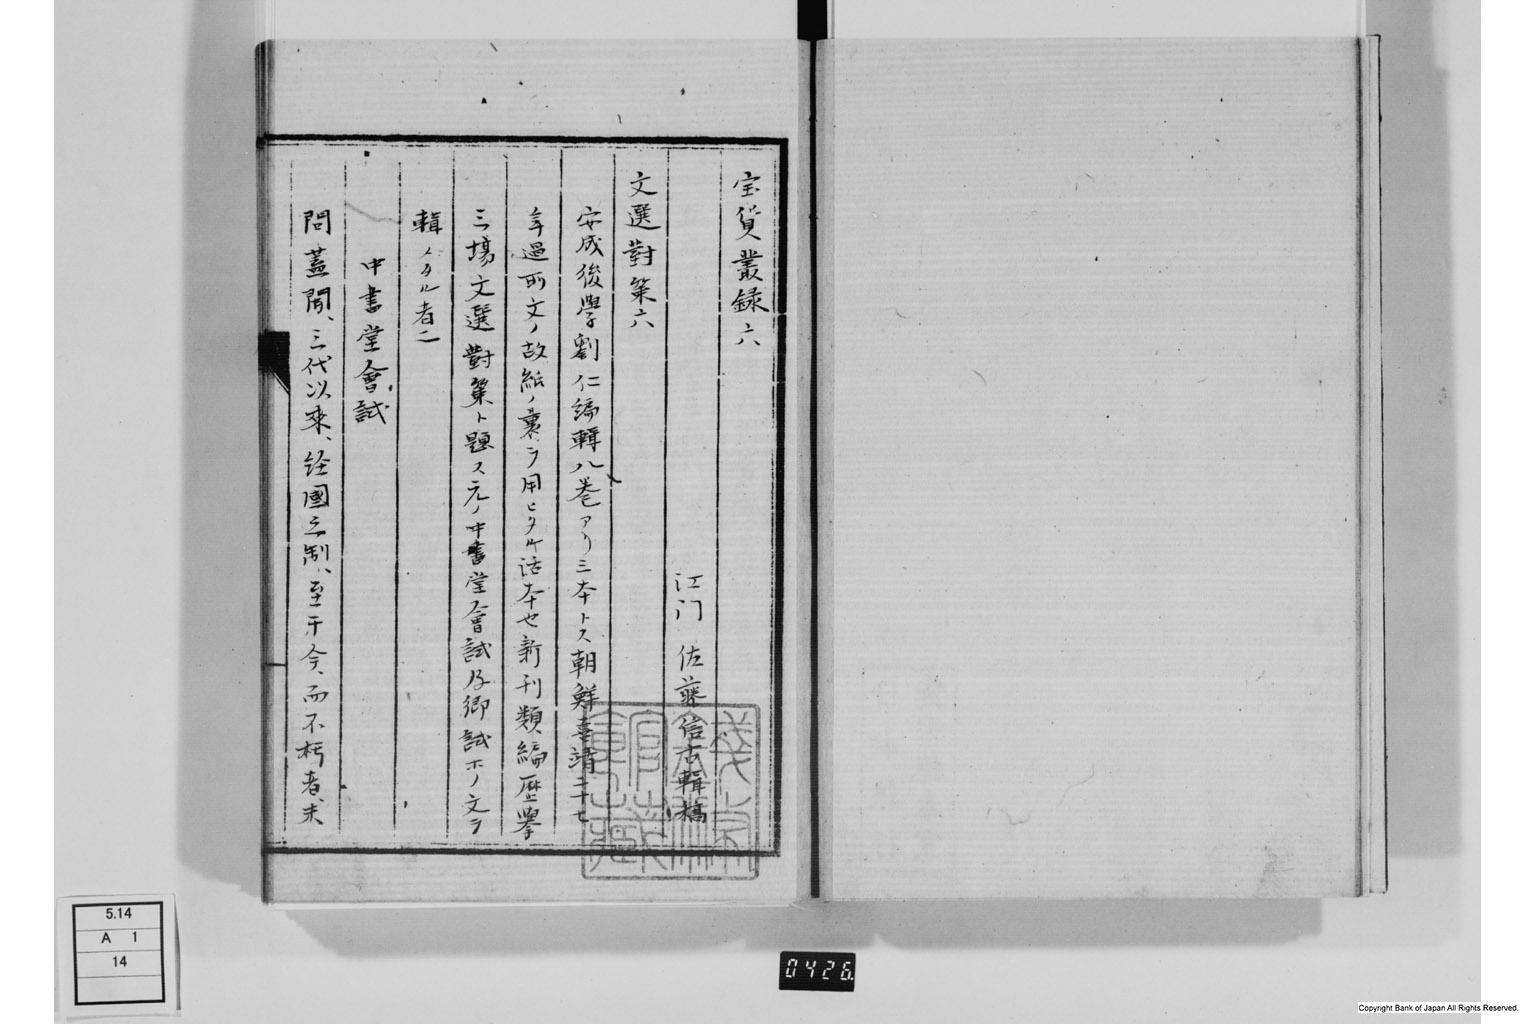 宝貨叢録六
江门 佐藤信古輯稿
文選對策六
安成後學劉仁編輯八巻アリ三本トス朝鮮喜靖二十七
年過所文ノ故紙ノ裏ヲ用ヒタル活本也新刊類編歴擧
三場文選對策ト題ス元ノ中書堂會試及郷試ホノ文ヲ
輯メタル者ニ
中書堂會試
問蓋聞、三代以來、経國之制、至于今、而不朽者、未
5.14
A 1
14
0426
Copyright Bank of Japan All Rights Reserved.